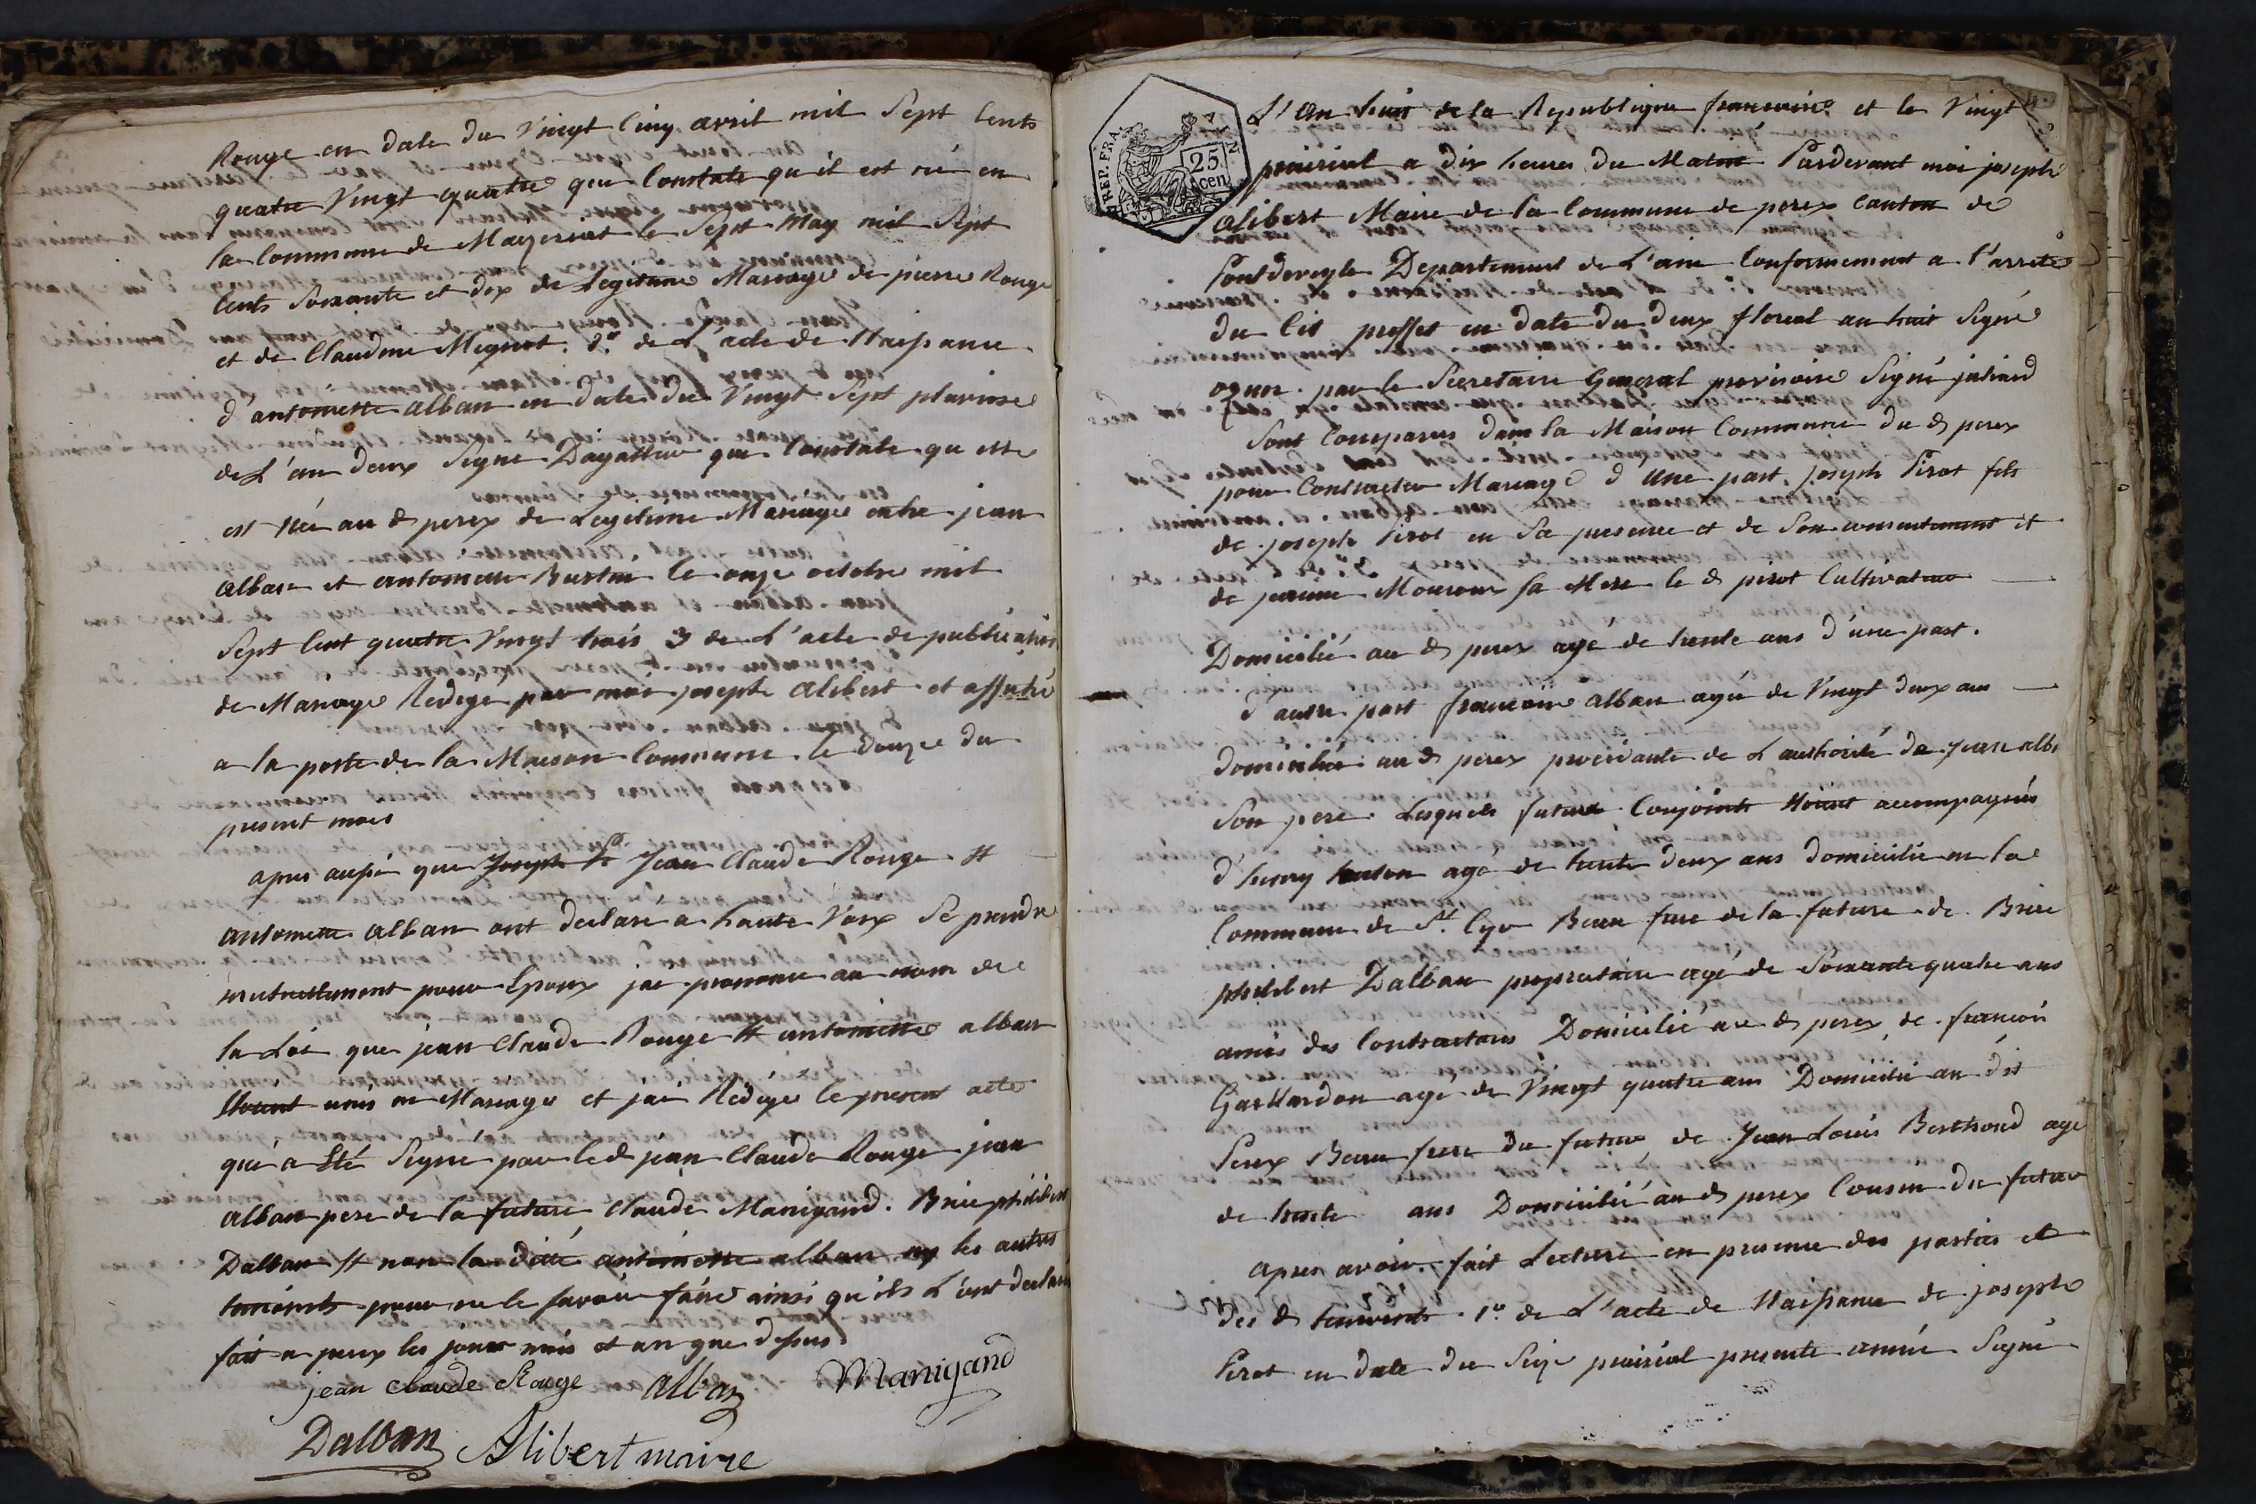 Rouge en date du Vingt Cinq avril mil Sept Cents
quatre Vingt quatre qui Constate qu'il est né en
la Commune de Mayeriat le Sept May mil Sept
Cents Soixante et dix de Legitime Mariage de pierre Rouge
et de Claudine Mignot. 2.º de L'acte de Naissance
d'antoinette alban en date du Vingt Sept pluviose
de L'an deux Signé Dagallier qui Constate qu'elle
est née au d perex de Legitime Mariage entre jean
alban et antoinette Burtin le onze octobre mil
Sept Cent quatre Vingt trois 3 de L'acte de publication
de Mariage Redigé par moi joseph alibert et affiché
a la porte de la Maison Commune le Douze du
present mois
apres aussi que Joseph Jean Claude Rouge et
antoinette alban ont declaré a haute Voix Se prendre
mutuellement pour Epoux jai prononcé au nom de
la Loi que jean Claude Rouge et antoinette alban
Etoient unis en Mariage et jai Redigé le present acte
qui a Eté Signé par le d jean Claude Rouge jean
alban pere de la future Claude Manigand. Brice philibert
Dalban et non la ditte antoinette alban ny les autres
temoints pour ne le savoir faire ainsi qu'ils L'ont declaré
fait a perex les jour mois et an que dessus
jean claude Rouge alban Manigand
Dalban Alibert maire
REP. FRA.
25 cen
L'An huit de la Republique francoise et le Vingt
prairial a dix heures du Matin Pardevant moi joseph
alibert Maire de la Commune de perex Canton de
Pontdeveyle Departement de L'ain Conformement a l'arreté
du Cit preffet en date du deux floreal an huit Signé
ozun. par le Secretaire General provisoire Signé
Sont Comparus dans la Maison Commune du d perex
pour Contracter Mariage d'Une part. joseph Pirot fils
de joseph Pirot en Sa presence et de Son consentement et
de Sa Mere le d pirot Cultivateur
Domicilié au d perex agé de trente ans d'une part.
d'autre part francoise alban agée de Vingt deux ans
domiciliée au d perex procédante de L'authorité de jean alb
Son pere. Lesquels futurs Conjoints Etoient accompagnés
d'henry agé de trente deux ans domicilié en la
Commune de St. Cyr Beau frere de la future de Brice
philibert Dalban propriétaire agé de Soixante quatre ans
amis des Contractans Domicilié au d perex de francois
Gaillardon agé de Vingt quatre ans Domicilié au dit
Perex Beau frere du futur de Jean Louis Berthoud agé
de trente ans Domicilié au d perex Cousin du futur
apres avoir fait Lecture en presence des parties et
des d temoints 1.º de L'acte de Naissance de joseph
Pirot en date du Seize prairial presente année Signé